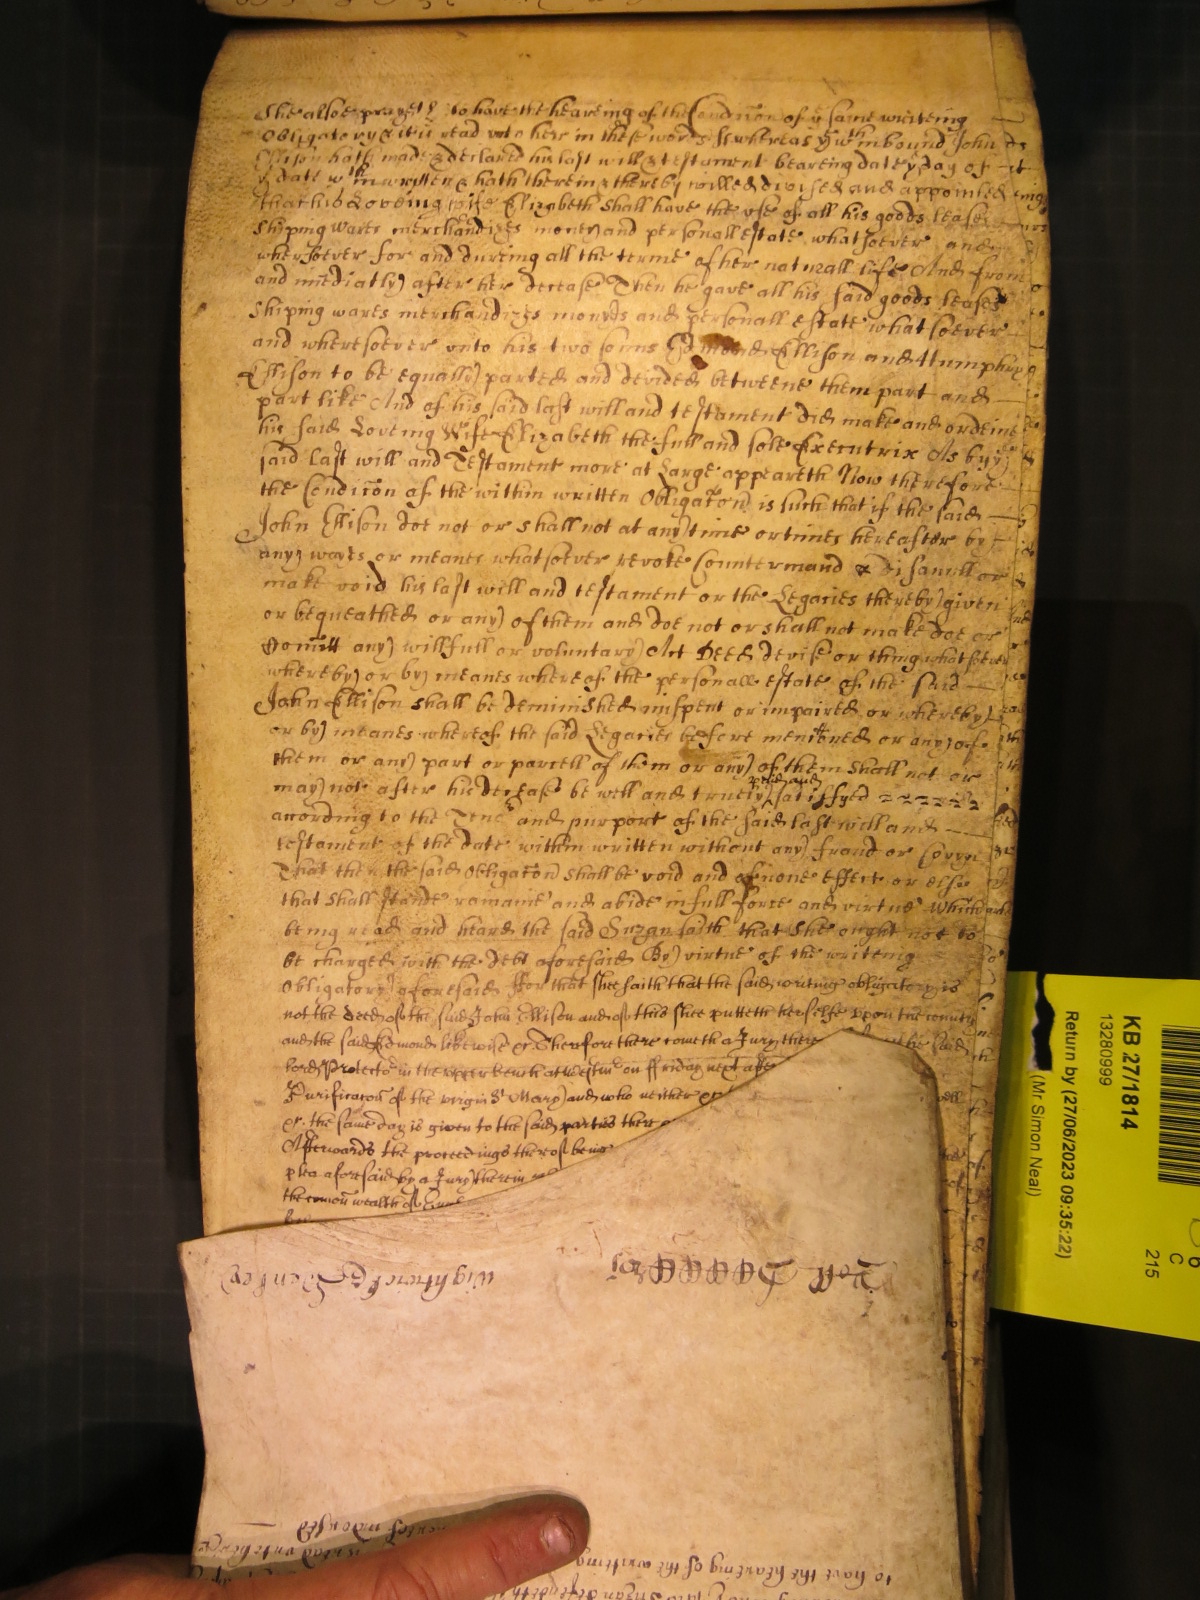 She alsoe prayeth to have the heareing of the Condicon of ye same writeing
Obligatory & it is read unto her in these words Whereas ye wthin bound John
Ellison hath made & declared his last will & testament beareing date ye day of
ye date wthin written & hath therein & thereby willed devised and appointed
that his Loveing wife Elizabeth shall have the use of all his goods leases
Shiping wares merchandizes money and personall estate whatsoever and
wheresoever for and dureing all the terme of her naturall life And from
and imediatly after her decease Then he gave all his said goods leases
Shiping wares merchandizes moneyes and personall estate whatsoever
and wheresoever unto his two sonns Edmond Ellison and Humphry
Ellison to be equally parted and devided betweene them part and
part like And of his said last will and testament did make and ordeine
his said Loveing Wife Elizabeth the full and sole Executrix As by ye
said last will and Testament more at Large appeareth Now therefore
the Condicon of the within written Obligacon is such that if the said
John Ellison doe not or shall not at any time or times hereafter by
any wayes or meanes whatsoever revoke Countermand disanull or
make void his last will and testament or the Legacies thereby given
or bequeathed or any of them and doe not or shall not make doe or
Comitt any willfull or voluntary Act Deed devise or thing whatsoever
whereby or by meanes whereof the personall estate of the said
John Ellison shall be deminished mispent or impaired or whereby
or by meanes whereof the said Legacies before mencioned or any of
them or any part or parcell of them or any of them shall not or
may not after his decease be well and truely paid and satisfyed
according to the Tenor and purport of the said last will and
testament of the date within written without any fraud or Covyn
That then the said Obligacon shall be void and of none effect or else
that shall stande remaine and abide in full force and virtue Which
being read and heard the said Suzan saith that She ought not to
be charged with the debt aforesaid By virtue of the writeing
Obligatory aforesaid ffor that shee saith that the said writing obligatory is
not the deed of the said John Ellison and of this shee putteth herselfe upon the country
and the said Edmond likewise &c Therefore there cometh a Jury there
lord Protector in the upper bench at Westmr on ffriday next after
Purificacon of the virgin St Mary and who neither
&c the same day is given to the said parties there
Afterwards the proceedings thereof being
plea aforesaid by a Jury therein
the comon wealth of
KB 27/1814
13280999
Return by (27/06/2023 09:35:22)
(Mr Simon Neal)
C
215
Wightwick
to have the heareing of the writing